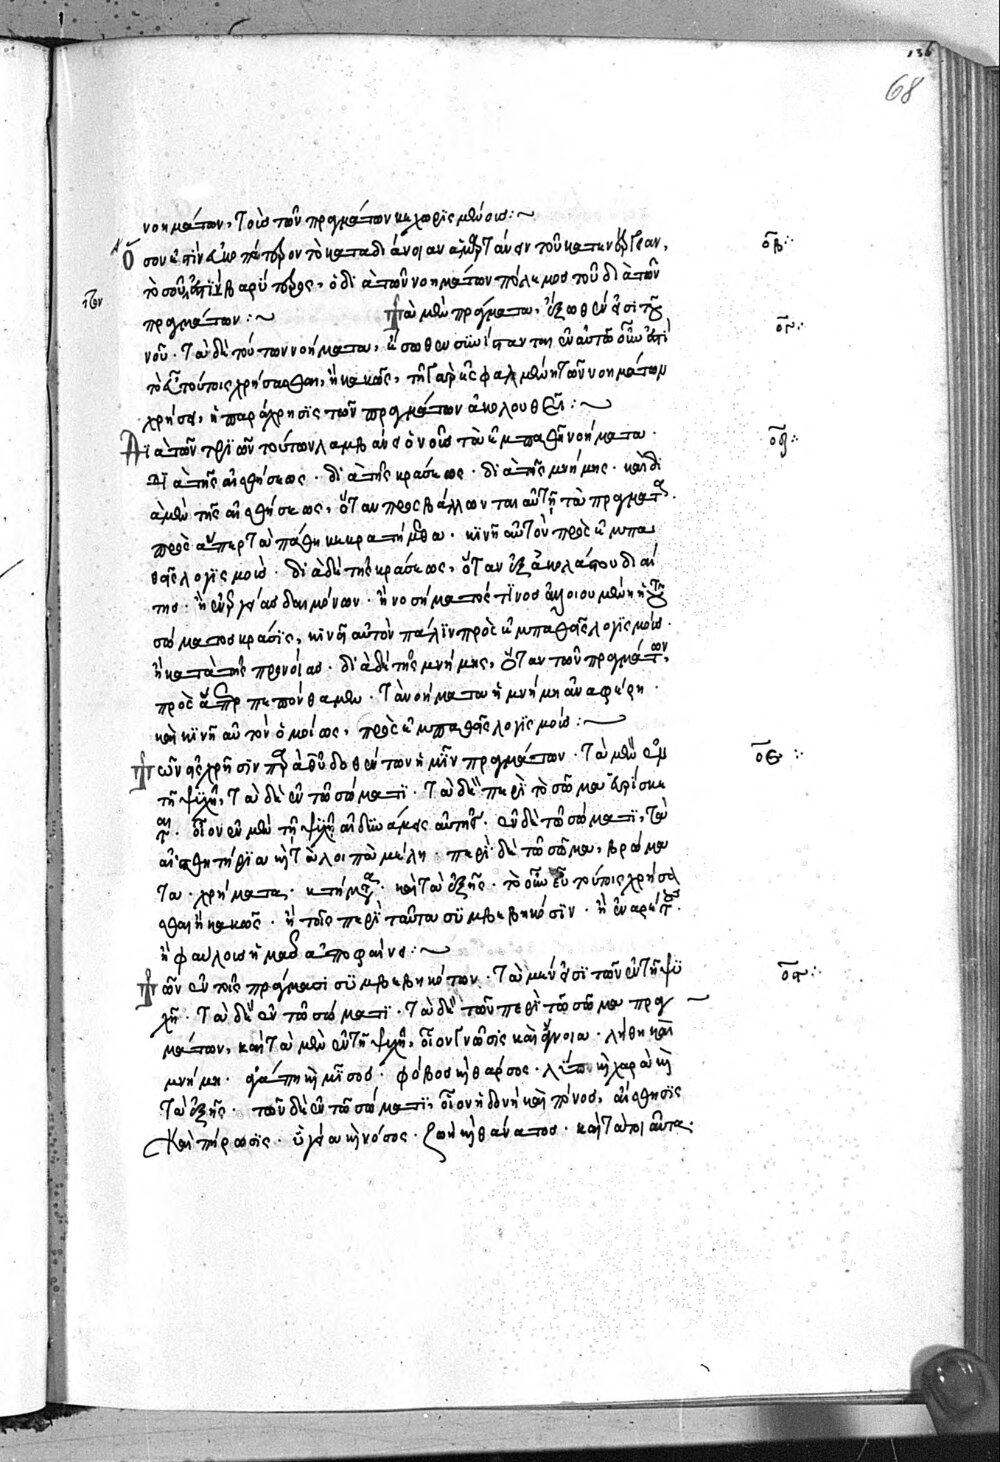 136
68
νοημάτων, τοὺς τῶν πραγμάτων κεχωρισμένους :~
Ὅσον ἐστὶν εὐκοπώτερον τὸ κατὰ διάνοιαν ἁμαρτάνειν τοῦ κατ' ἐνέργειαν, οβ
τοσοῦτόν ἐστι βαρύτερος, ὁ διὰ τῶν νοημάτων πόλεμος τοῦ διὰ τῶν
πραγμάτων :~ Τὰ μὲν πράγματα, ἔξωθέν εἰσι τοῦ ογ
νοῦ · τὰ δὲ τούτων νοήματα, ἔσωθεν συνίστανται ἐν αὐτῷ οὖν ἐστὶ
τὸ εὖ τούτοις χρήσασθαι, ἢ κακῶς, τῇ γὰρ ἐσφαλμένῃ τῶν νοημάτων
χρήσει, ἡ παράχρησις τῶν πραγμάτων ἀκολουθεῖ :~
Διὰ τῶν τριῶν τούτων λαμβάνει ὁ νοῦς τὰ ἐμπαθῆ νοήματα · οδ
διὰ τῆς αἰσθήσεως · διὰ τῆς κράσεως · διὰ τῆς μνήμης · καὶ δι
ὰ μὲν τῆς αἰσθήσεως, ὅταν προσβάλλωνται αὐτῇ τὰ πράγματα
πρὸς ἅπερ τὰ πάθη κεκρατήμεθα · κινῇ αὐτὸν πρὸς ἐμπα
θεῖς λογισμούς · διὰ δὲ τῆς κράσεως, ὅταν ἐξ ἀκολάστου διαί
της · ἢ ἐνεργείας δαιμόνων · ἢ νοσήματός τινος ἀλλοιουμένη ἡ τοῦ
σώματος κρᾶσις, κινῇ αὐτὸν πάλιν πρὸς ἐμπαθεῖς λογισμούς ·
ἢ κατὰ τῆς προνοίας · διὰ δὲ τῆς μνήμης, ὅταν τῶν πραγμάτων,
πρὸς ἅπερ πεπόνθαμεν · τὰ νοήματα ἡ μνήμη ἀναφέρῃ ·
καὶ κινῇ αὐτὸν ὁμοίως, πρὸς ἐμπαθεῖς λογισμούς :~
Τῶν εἰς χρῆσιν παρὰ θεοῦ δοθέντων ἡμῖν πραγμάτων · τὰ μὲν ἐν οε
τῇ ψυχῇ, τὰ δὲ ἐν τῷ σώματι · τὰ δὲ περὶ τὸ σῶμα εὑρίσκε
ται · οἷον ἐν μὲν τῇ ψυχῇ αἱ δυνάμεις αὐτῆς · ἐν δὲ τῷ σώματι, τὰ
αἰσθητήρια καὶ τὰ λοιπὰ μέλη · περὶ δὲ τὸ σῶμα, βρώμα
τα · χρήματα · κτήματα · καὶ τὰ ἑξῆς · τὸ οὖν εὖ τούτοις χρήσα
σθαι ἢ κακῶς · ἢ τοῖς περὶ ταῦτα συμβεβηκόσιν · ἢ ἐναρέτους
ἢ φαύλους ἡμᾶς ἀποφαίνει :~
Τῶν ἐν τοῖς πράγμασι συμβεβηκότων · τὰ μέν εἰσι τῶν ἐν τῇ ψυ ος
χῇ · τὰ δὲ ἐν τῷ σώματι · τὰ δὲ τῶν περὶ τὸ σῶμα πραγ
μάτων, καὶ τὰ μὲν ἐν τῇ ψυχῇ, οἷον γνῶσις καὶ ἄγνοια · λήθη καὶ
μνήμη · ἀγάπη καὶ μῖσος · φόβος καὶ θάρσος · λύπη καὶ χαρὰ καὶ
τὰ ἑξῆς · τῶν δὲ ἐν τῷ σώματι, οἷον ἡδονὴ καὶ πόνος, αἴσθησις
καὶ πήρωσις · ὑγεία καὶ νόσος · ζωὴ καὶ θάνατος · καὶ τὰ τοιαῦτα ·